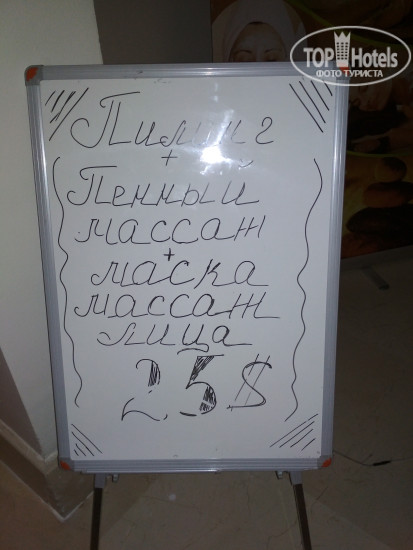 TOP Hotels
ФОТО ТУРИСТА
Пилинг
+
Пенный
массаж
+
маска
массаж
лица
25$